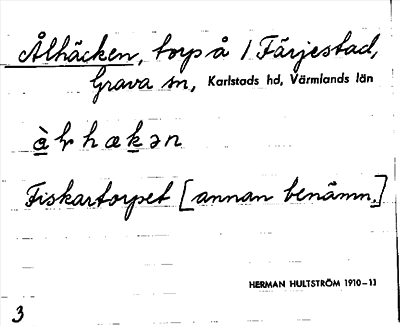 Ålhäcken, torp å 1 Färjestad,
Grava sn, Karlstads hd, Värmlands län
à l h æ k ə n
Fiskartorpet [annan benämn.]
HERMAN HULTSTRÖM 1910-11
3